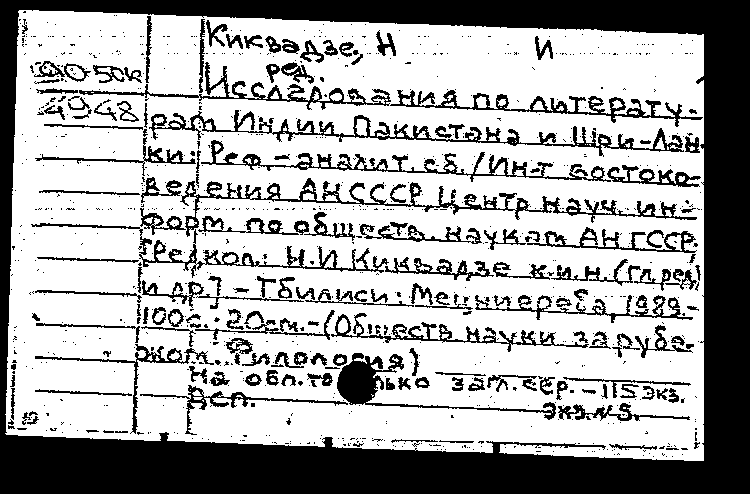 Киквадзе, Н И
ред.
50к
4948
Исследования по литерату-
рам Индии, Пакистана и Шри-Лан-
ки: Реф.-аналит. сб. / Ин-т востоко-
ведения АН СССР, Центр науч. ин-
форм. по обществ. наукам АН ГССР;
[Редкол.: Н.И Киквадзе к.и.н. (гл. ред)
и др.] - Тбилиси: Мецниереба, 1989.-
100с.; 20см.-(Обществ науки за рубе-
жом. Филология)
На обл. только загл. сер. - 115 экз.
Дсп. Экз. N 5.